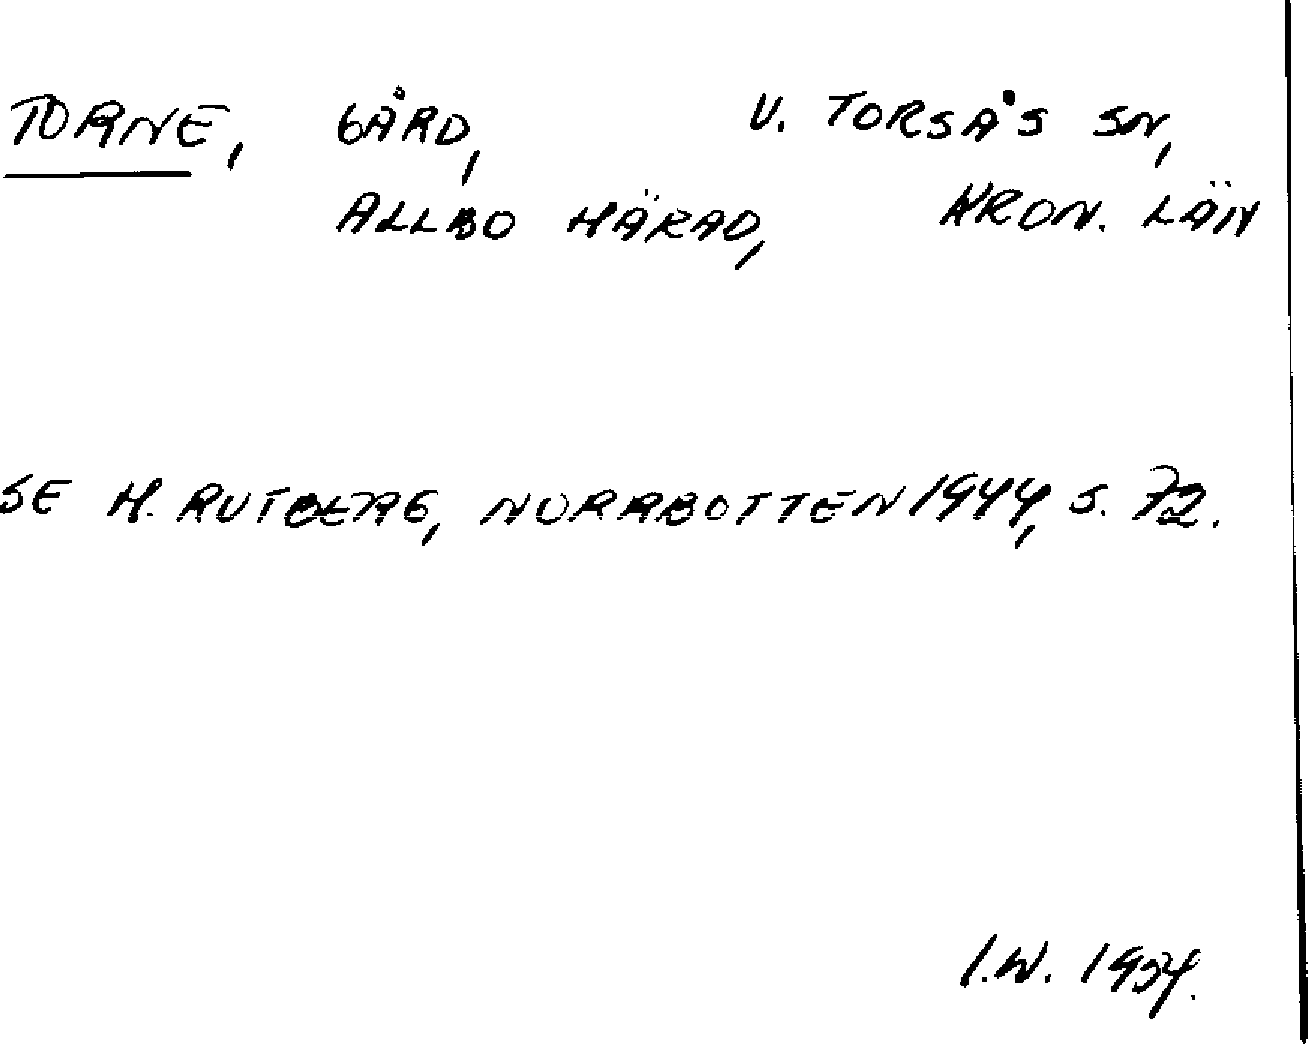 TORNE, GÅRD, V. TORSÅS SN,
ALLBO HÄRAD, KRON. LÄN
SE H. RUTBERG, NORRBOTTEN 1944, S. 72.
I.W. 1954.